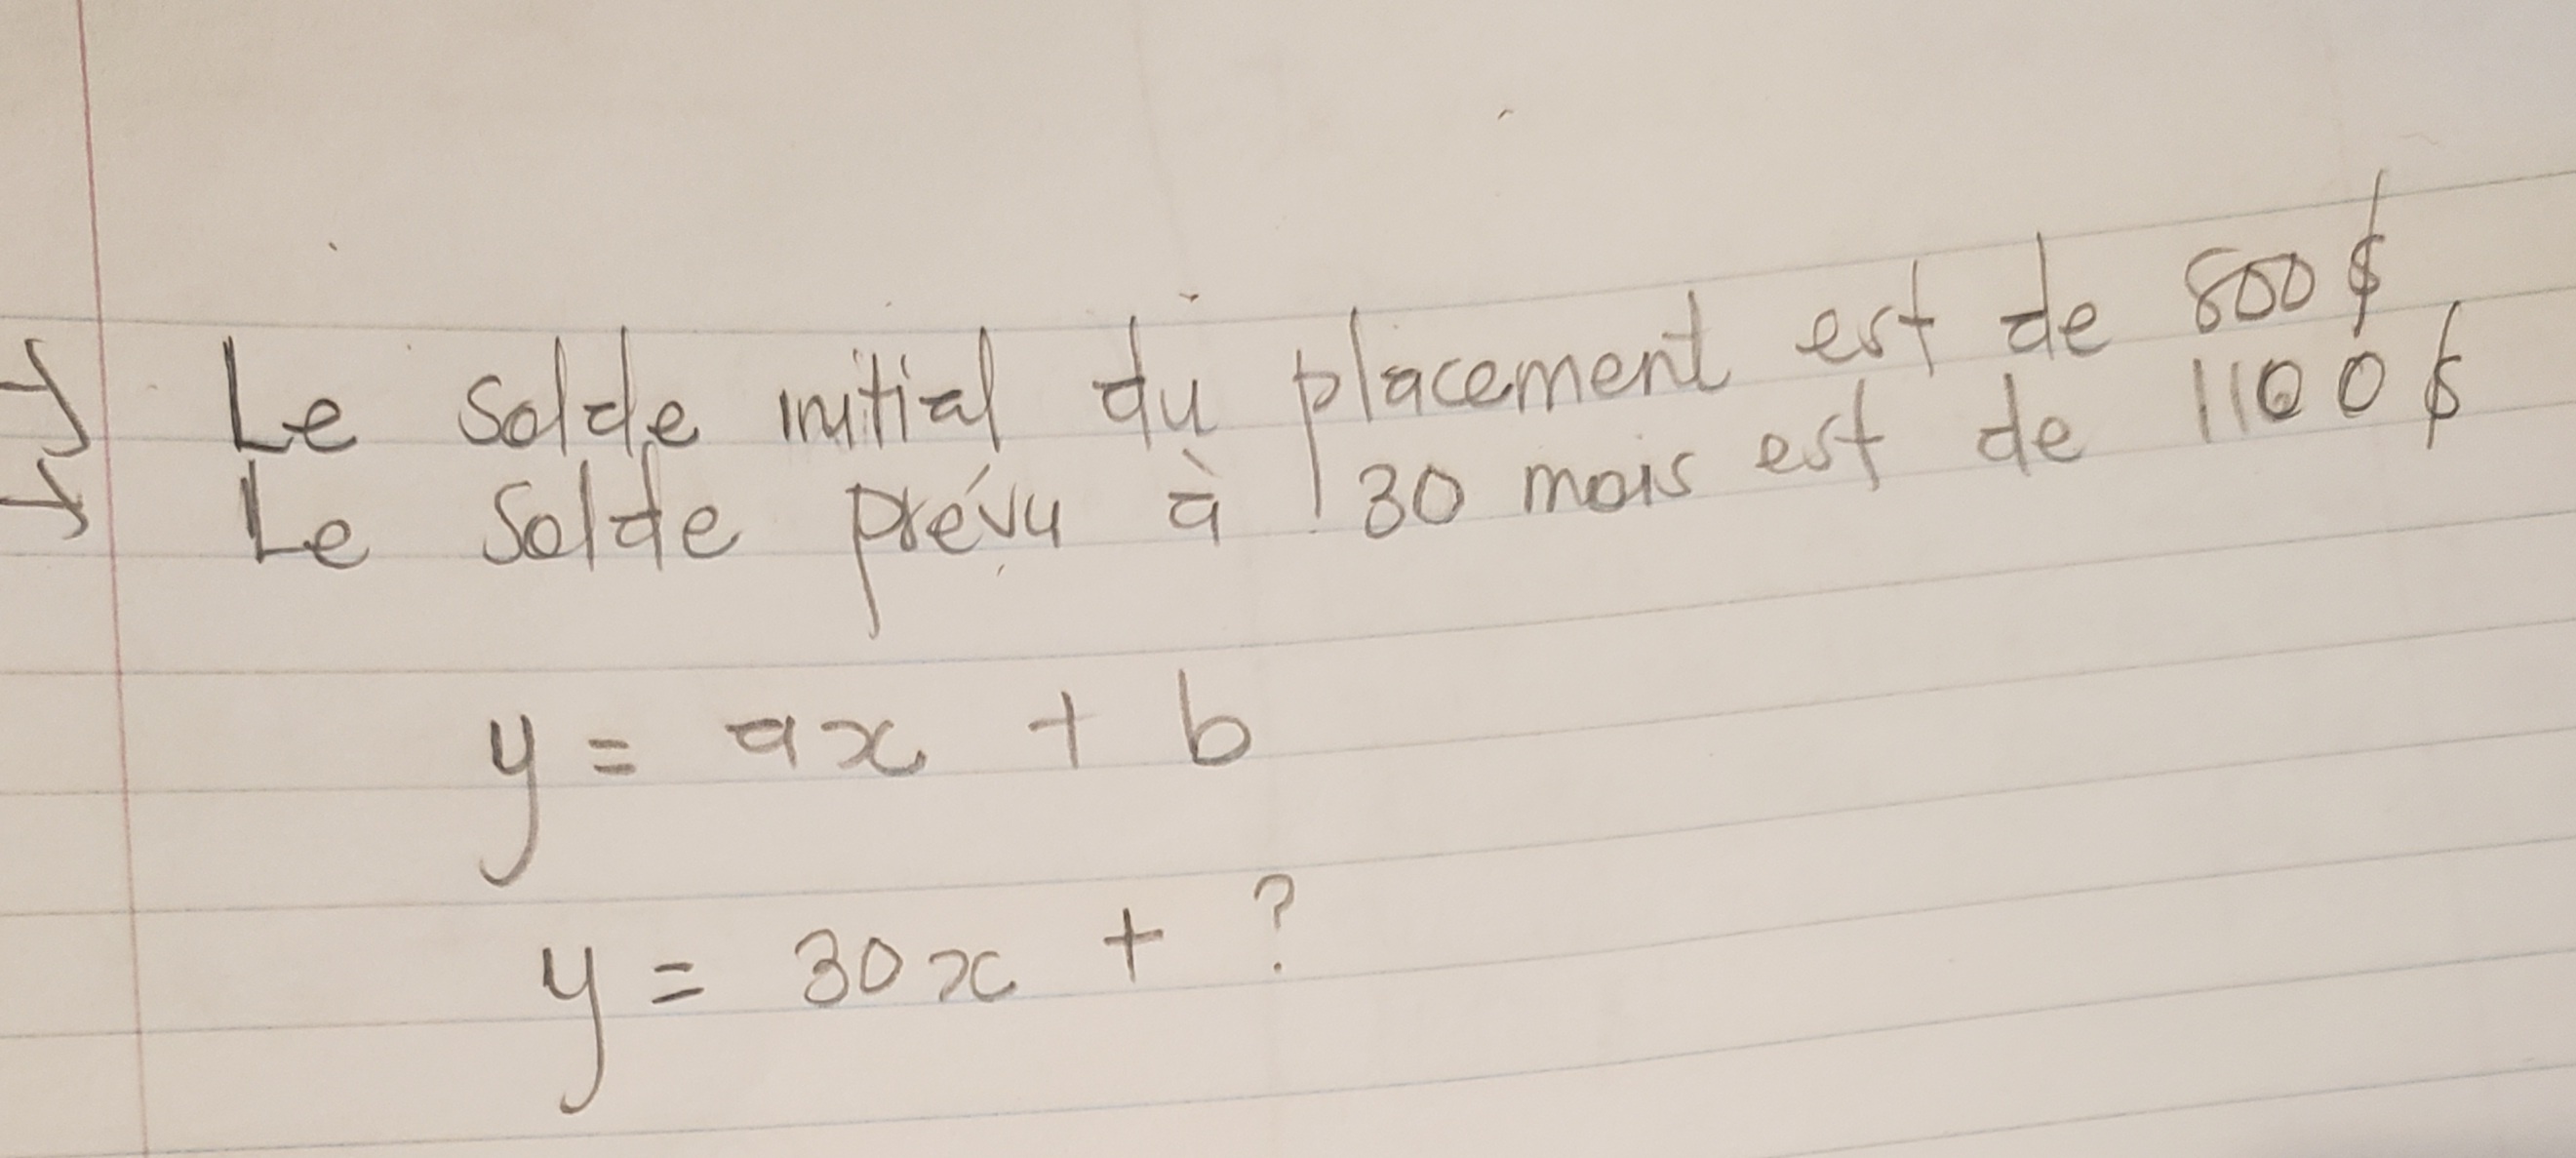 → Le solde initial du placement est de 800 $
→ Le solde prévu à 30 mois est de 1100 $
y = ax + b
y = 30x + ?